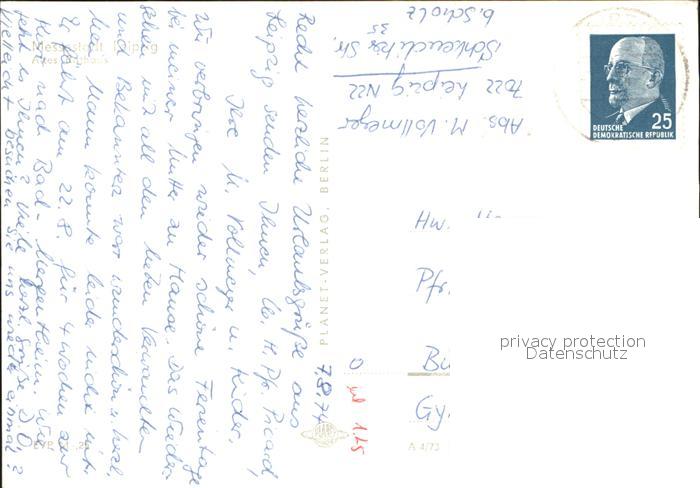 Messestadt Leipzig
Altes Rathaus
Recht herzliche Urlaubsgrüße aus
Leipzig senden Ihnen, lb. H. Pfr.
Ihre M. Vollmeyer u. Kinder.
Wir verbringen wieder schöne Ferientage
bei meiner Mutter zu Hause. Das Wieder-
sehen mit all den lieben Verwandten
und Bekannten war wunderschön u. herzl.
Mein Mann konnte leider nicht mit.
Er fährt am 22.8. für 4 Wochen zur
Kur nach Bad-Mergentheim. Wie
geht es Ihnen? Viele herzl. Grüße D.O.
Vielleicht besuchen Sie uns wieder einmal?
7.8.74
PLANET-VERLAG, BERLIN
A 4/73
1.25
Abs. M. Vollmeyer
7022 Leipzig N22
Schkeuditzer Str.
35
b. Scholz
DEUTSCHE
DEMOKRATISCHE REPUBLIK
25
Hw.
Pfr.
Gy
privacy protection
Datenschutz